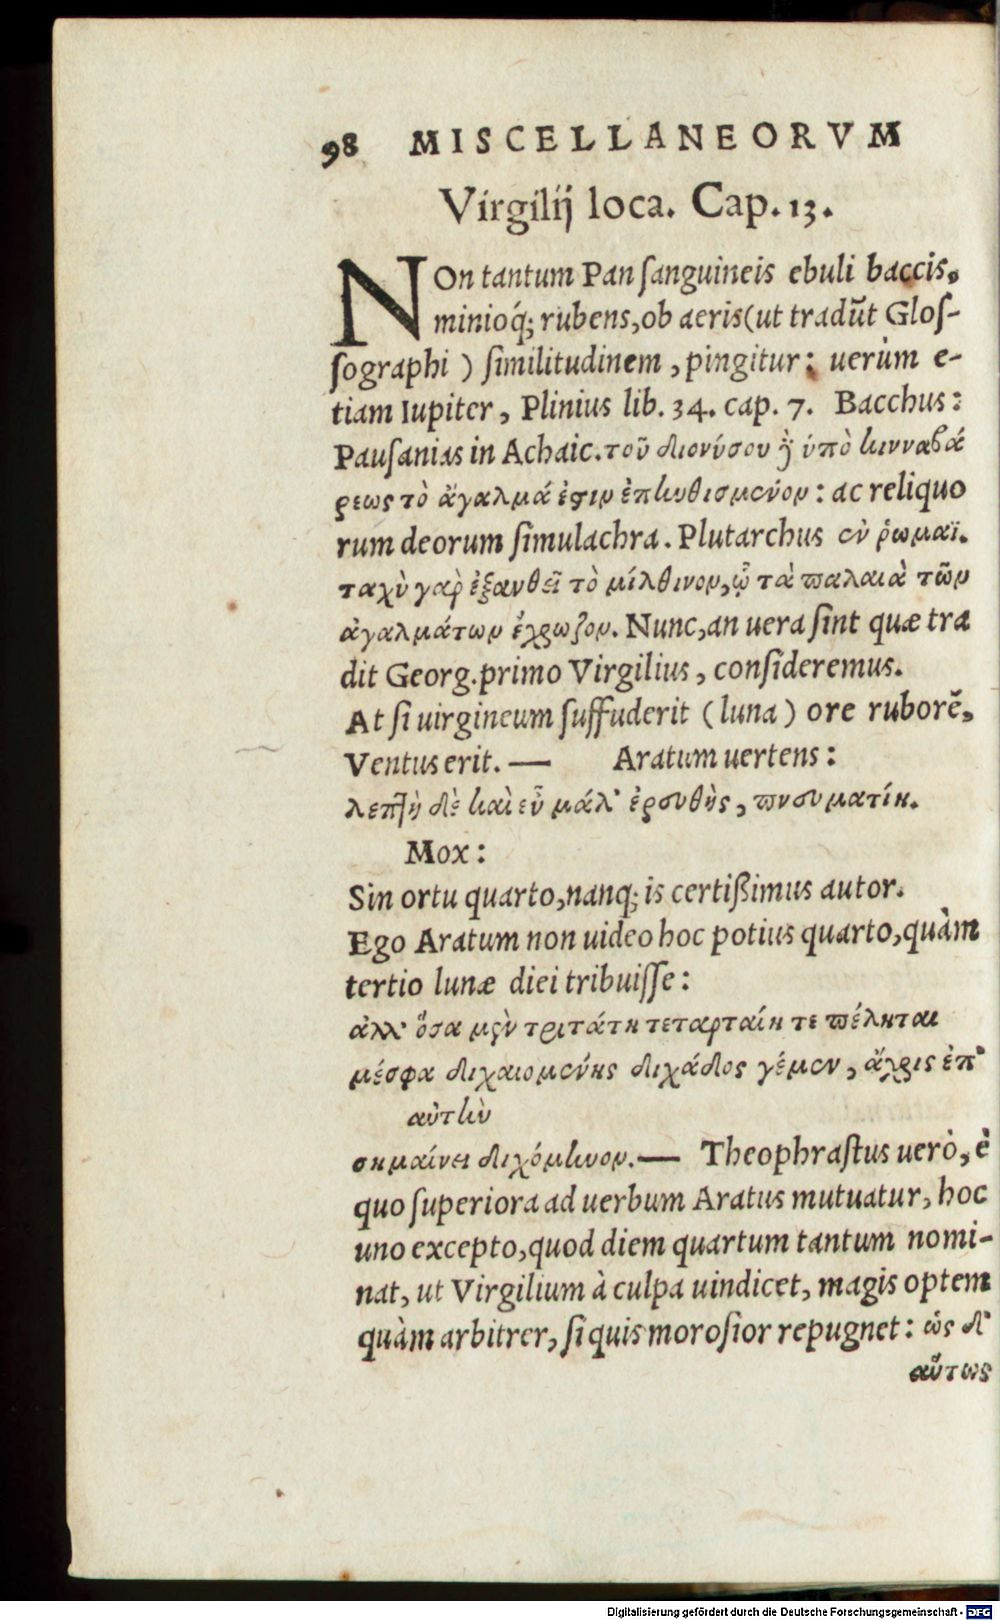 98 MISCELLANEORVM
Virgilij loca. Cap. 13.
NOn tantum Pan ſanguineis ebuli baccis,
minioq́; rubens, ob aeris (ut tradūt Gloſ-
ſographi) ſimilitudinem, pingitur: uerùm e-
tiam Iupiter, Plinius lib. 34. cap. 7. Bacchus:
Pauſanias in Achaic. τοῦ διονύσου ὑπὸ κινναβά
ρεως τὸ ἄγαλμά ἐστιν ἐπηνθισμένον: ac reliquo
rum deorum ſimulachra. Plutarchus ἐν ῥωμαϊ.
ταχὺ γαρ̀ ἐξανθεῖ τὸ μίλθινον, ᾧ τὰ παλαιὰ τῶν
ἀγαλμάτων ἔχρωζον. Nunc, an uera ſint quæ tra
dit Georg. primo Virgilius, conſideremus.
At ſi uirgineum ſuffuderit (luna) ore ruborē,
Ventus erit. — Aratum uertens:
λεπτὴ δὲ καὶ εὖ μάλ' ἐρευθὴς, πνευματίη.
Mox:
Sin ortu quarto, nanq; is certißimus autor.
Ego Aratum non uideo hoc potius quarto, quàm
tertio lunæ diei tribuiſſe:
ἀλλ' ὅσα μὲν τριτάτη τεταρταίη τε πέληται
μέσφα διχαιομένης διχάδος γέμεν, ἄχρις ἐπ'
αὐτὴν
σημαίνει διχόμηνον. — Theophraſtus uerò, è
quo ſuperiora ad uerbum Aratus mutuatur, hoc
uno excepto, quod diem quartum tantum nomi-
nat, ut Virgilium à culpa uindicet, magis optem
quàm arbitrer, ſi quis moroſior repugnet: ὡς δ'
αὔτως
Digitalisierung gefördert durch die Deutsche Forschungsgemeinschaft - DFG